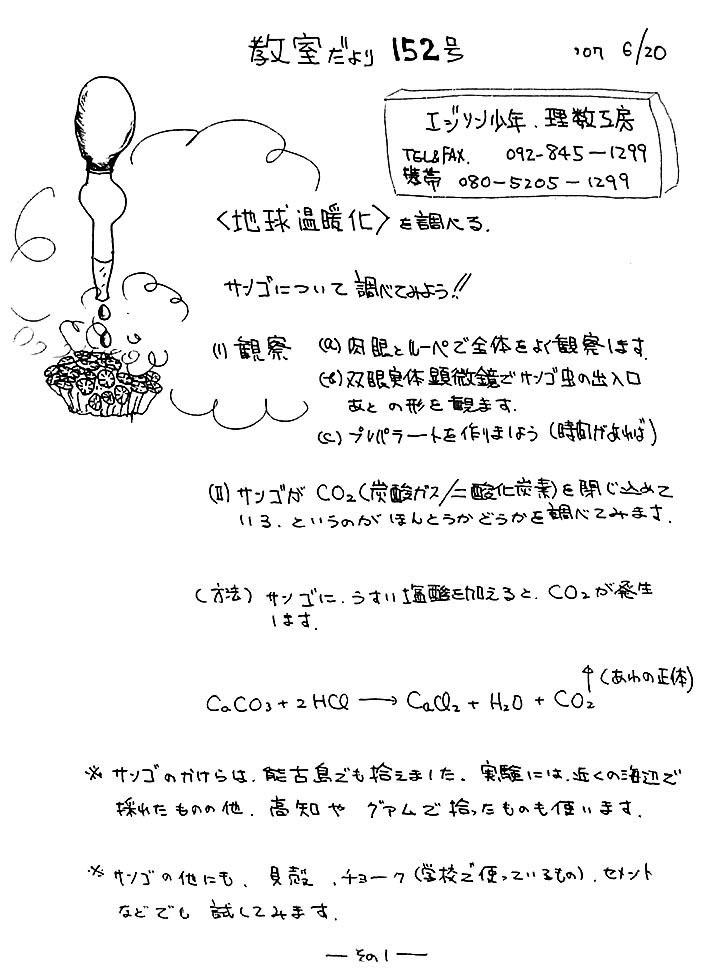 教室だより 152号 '07 6/20
エジソン少年.理数工房
TEL&FAX. 092-845-1299
携帯 080-5205-1299
〈地球温暖化〉を調べる.
サンゴについて調べてみよう!!
(I) 観察 (a) 肉眼とルーペで全体をよく観察します.
(b) 双眼実体顕微鏡でサンゴ虫の出入口
あとの形を観ます.
(c) プレパラートを作りましょう(時間があれば)
(II) サンゴが CO2(炭酸ガス/二酸化炭素)を閉じ込めて
いる.というのがほんとうかどうかを調べてみます.
(方法) サンゴに.うすい塩酸を加えると.CO2が発生
します.
↑(あわの正体)
CaCO3 + 2HCl → CaCl2 + H2O + CO2
※ サンゴのかけらは.能古島でも拾えました.実験には.近くの海辺で
採れたものの他.高知や グァムで拾ったものも使います.
※ サンゴの他にも.貝殻.チョーク(学校で使っているもの).セメント
などでも 試してみます.
— その1 —